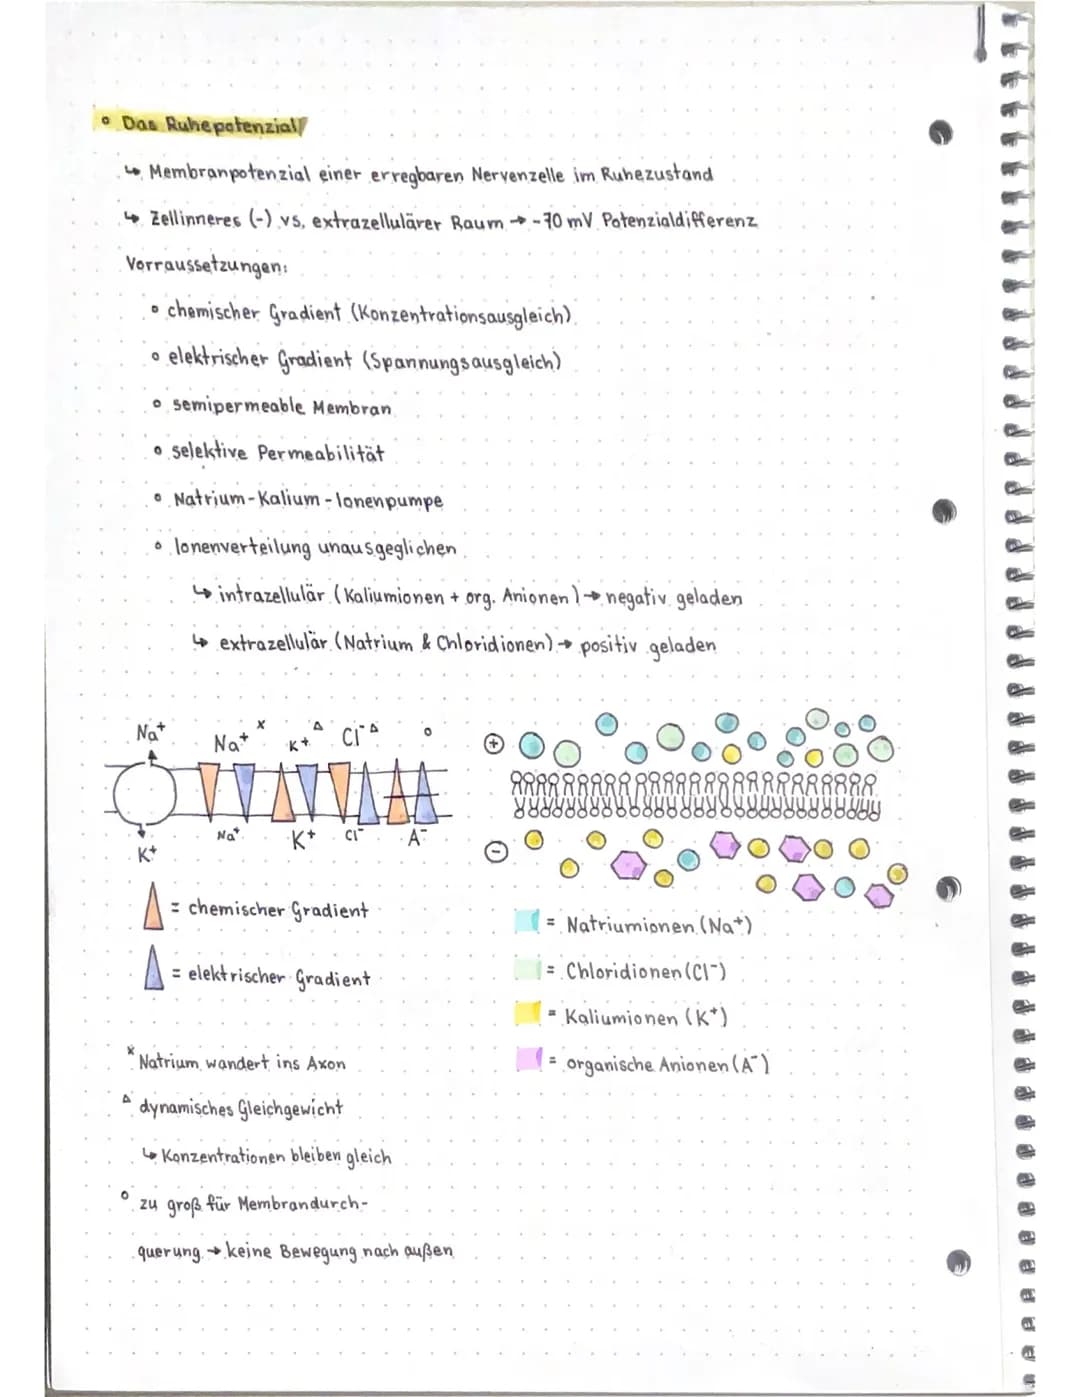 ° Das Ruhepotenzial
↳ Membranpotenzial einer erregbaren Nervenzelle im Ruhezustand
↳ Zellinneres (-) vs. extrazellulärer Raum → -70 mV Potenzialdifferenz
Vorraussetzungen:
° chemischer Gradient (Konzentrationsausgleich)
° elektrischer Gradient (Spannungsausgleich)
° semipermeable Membran
° selektive Permeabilität
° Natrium-Kalium-Ionenpumpe
° Ionenverteilung unausgeglichen
↳ intrazellulär (Kaliumionen + org. Anionen) → negativ geladen
↳ extrazellulär (Natrium & Chloridionen) → positiv geladen
Na⁺ Na⁺ ˣ K⁺ ᐞ Cl⁻ ᐞ °
K⁺ Na⁺ K⁺ Cl⁻ A⁻
+
-
= chemischer Gradient
= elektrischer Gradient
= Natriumionen (Na⁺)
= Chloridionen (Cl⁻)
= Kaliumionen (K⁺)
= organische Anionen (A⁻)
ˣ Natrium wandert ins Axon
ᐞ dynamisches Gleichgewicht
↳ Konzentrationen bleiben gleich
° zu groß für Membrandurch-
querung → keine Bewegung nach außen